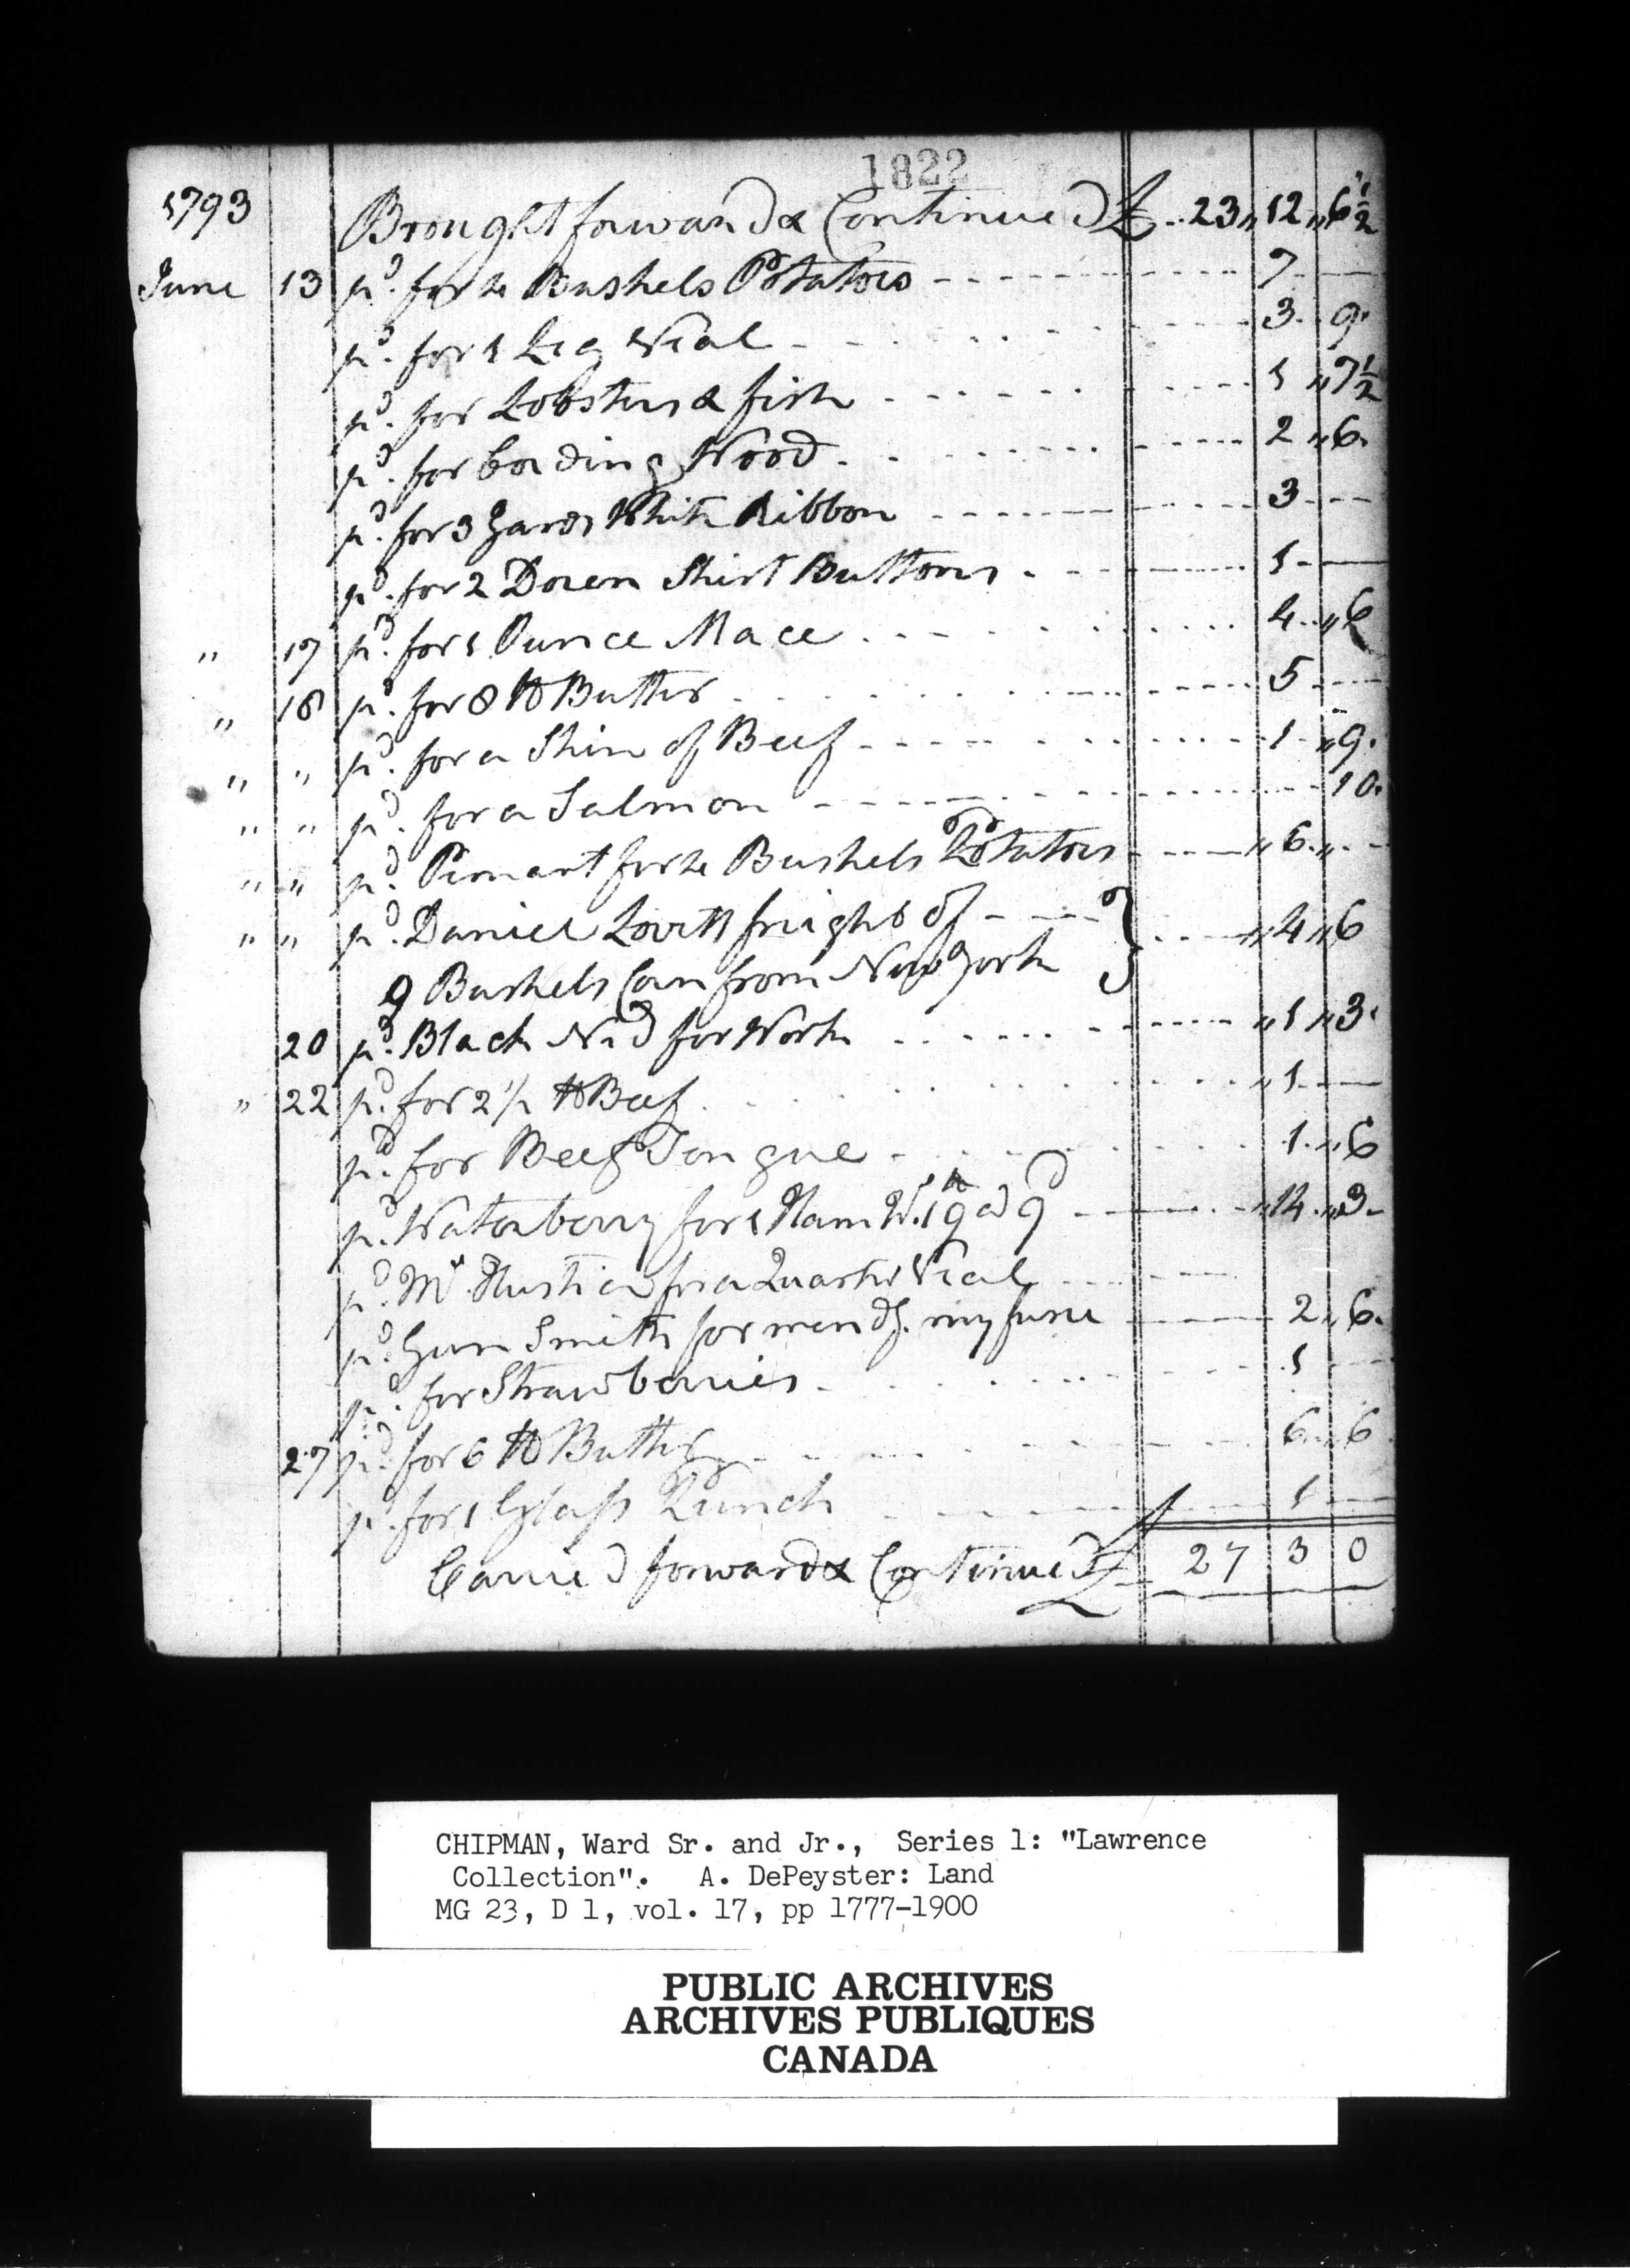 1822
1793 Brought forward & Continued £ .. 23 ,, 12 ,, 6 1/2
June 13 pd. for 2 Bushels Potatoes 7
pd. for 1 Leg Veal 3 9
pd. for Lobsters & fish 1 ,, 7 1/2
pd. for Cording Wood 2 ,, 6
pd. for 3 Yards White Ribbon 3
pd. for 2 Dozen Shirt Buttons 1
,, 17 pd. for 1 Ounce Mace 4 ,, 6
,, 18 pd. for 8 lb Butter 5
,, ,, pd. for a Shin of Beef 1 ,, 9
,, ,, pd. for a Salmon 10
,, ,, pd. for 2 Bushels Potatoes ,, 6 ,,
,, ,, pd. Daniel Lovett freight of } ,, 4 ,, 6
9 Bushels Corn from New York
20 pd. Black Ned for Work ,, 1 ,, 3
,, 22 pd. for 2 1/2 lb Beef ,, 1
pd. for Beef Tongue 1 ,, 6
pd. Waterberry for 1 Ham Wt. 19 lb @ 9d ,, 14 ,, 3
pd. Mr for a Quarter Veal
pd. Gun Smith for mendg. my 2 ,, 6
pd. for Strawberries 1
27 pd. for 6 lb Butter 6 ,, 6
pd. for 1 Glass Punch 1
Carried forward & Continued £ 27 3 0
CHIPMAN, Ward Sr. and Jr., Series 1: "Lawrence
Collection". A. DePeyster: Land
MG 23, D 1, vol. 17, pp 1777-1900
PUBLIC ARCHIVES
ARCHIVES PUBLIQUES
CANADA